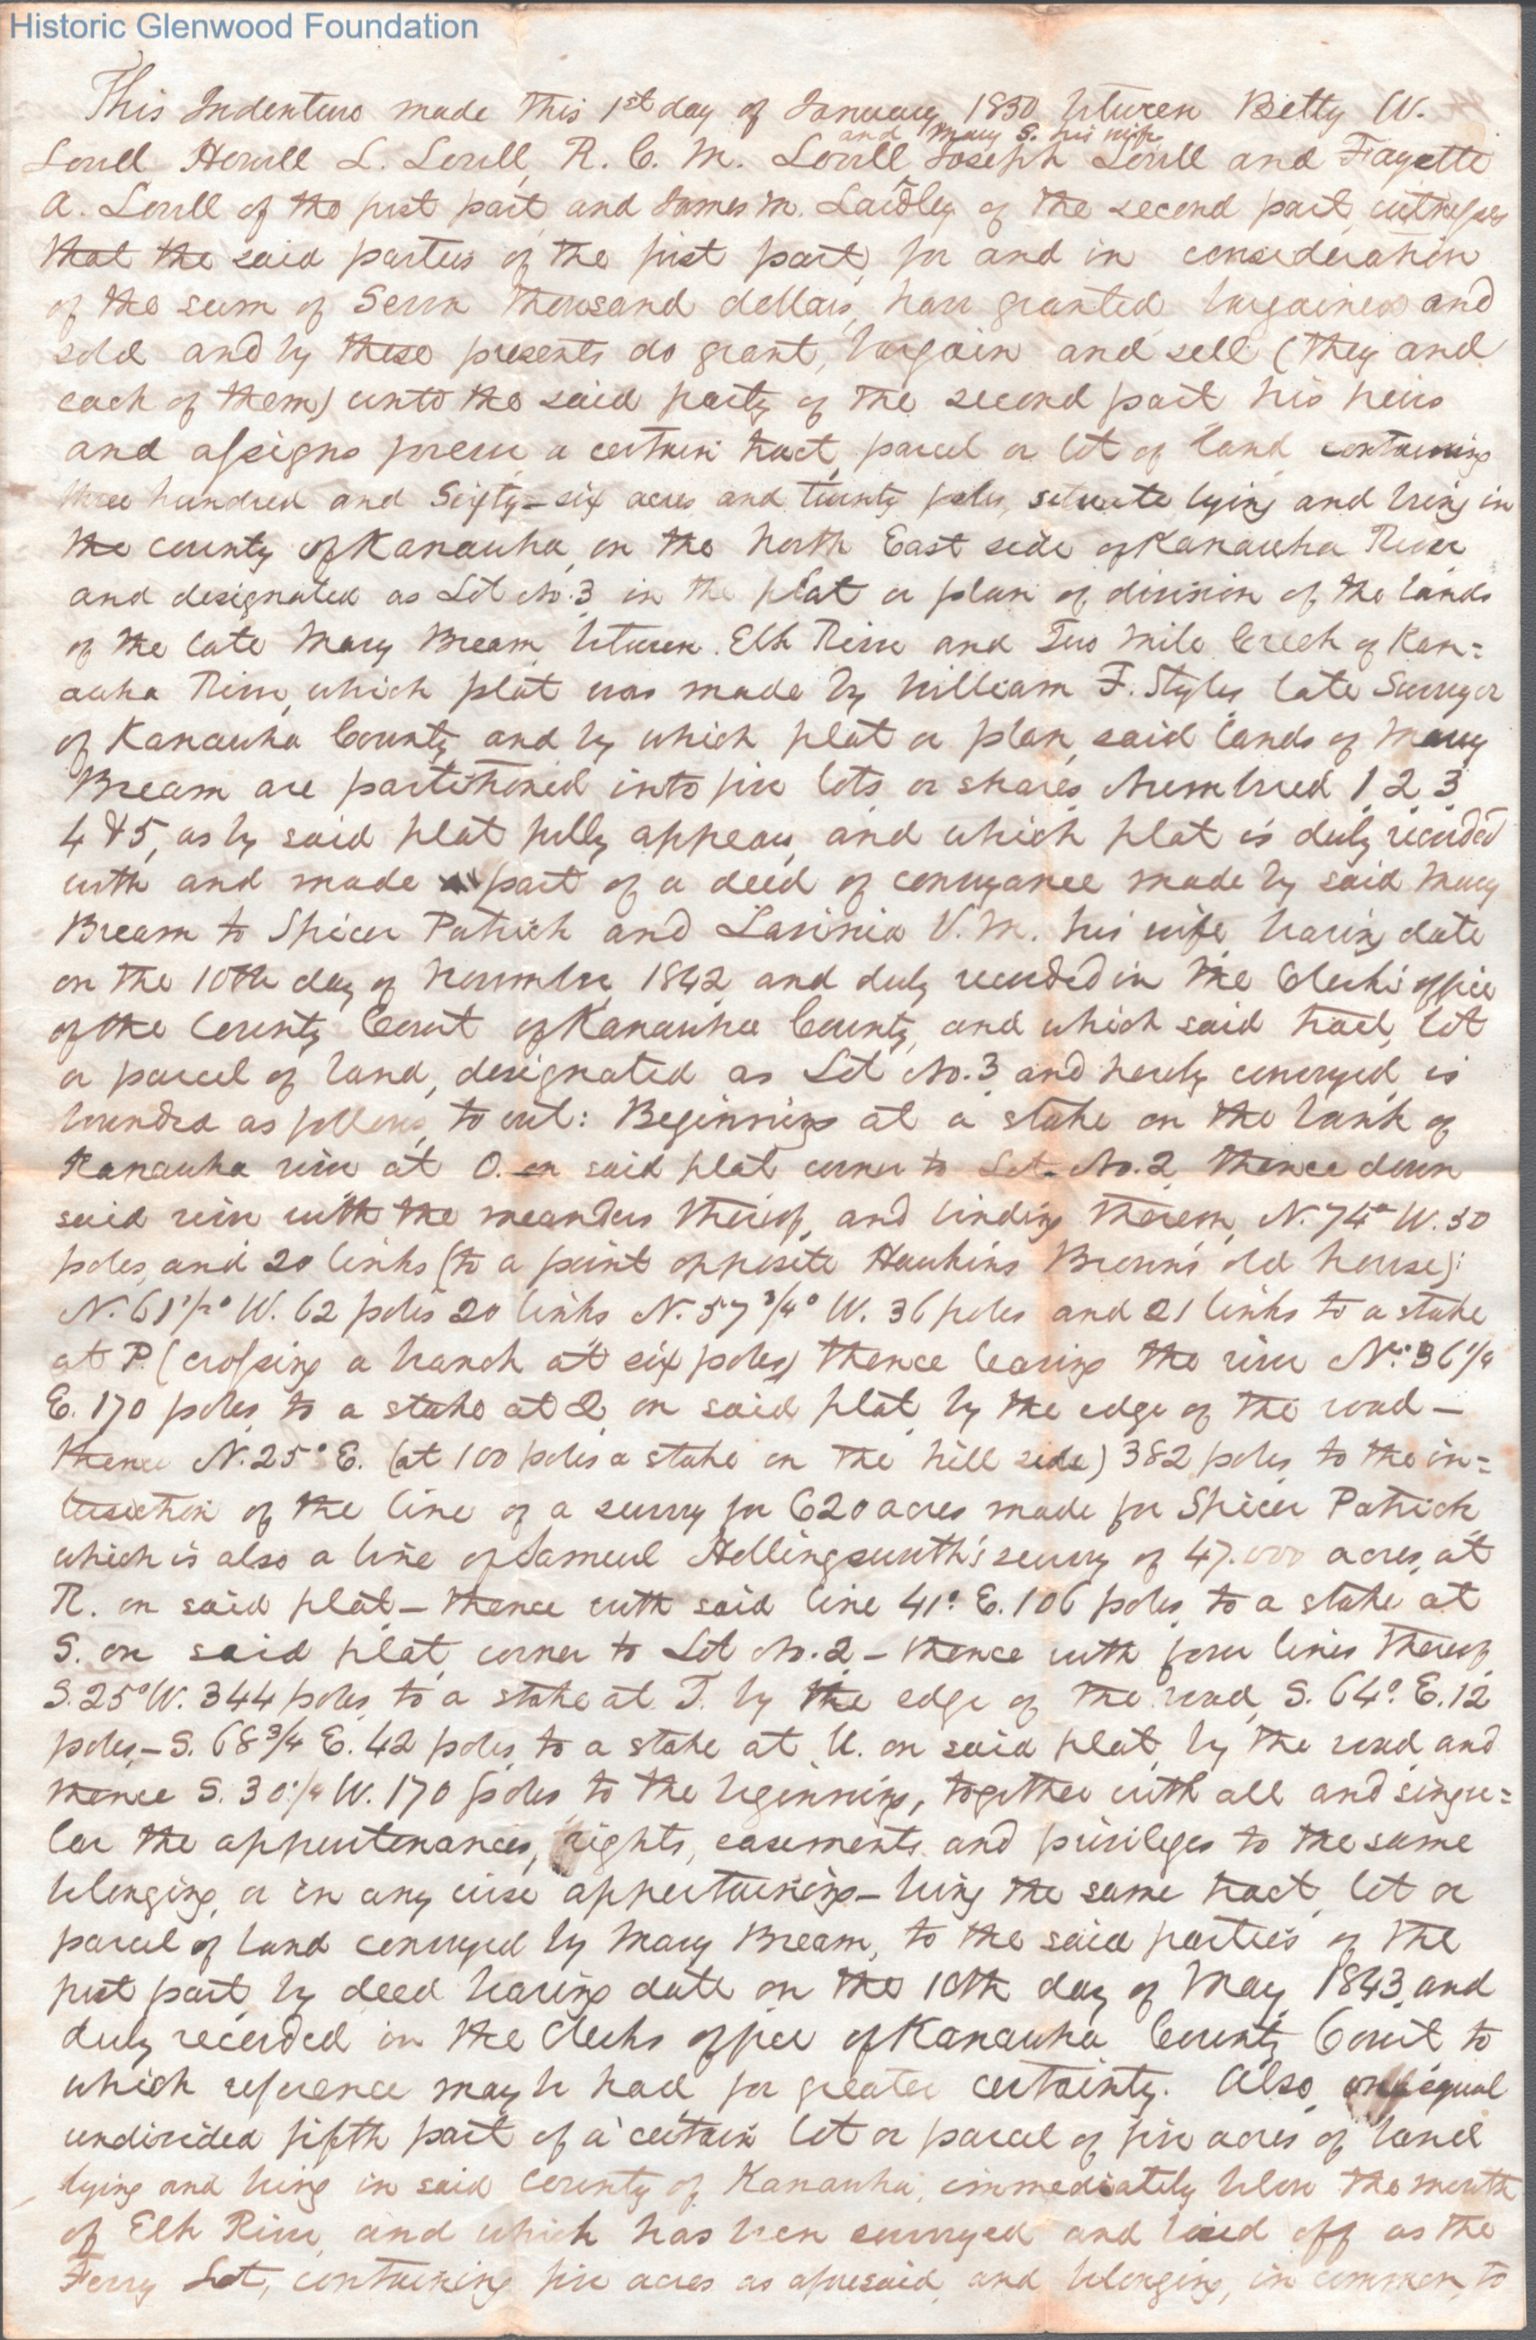 Historic Glenwood Foundation
This Indenture made this 1st day of January 1850 between Betty W.
and Mary S. his wife
Lovell Howell L. Lovell, R. C. M. Lovell Joseph Lovell and Fayette
A. Lovell of the first part and James M. Laidley of the second part, witnesses
that the said parties of the first part, for and in consideration
of the sum of Seven thousand dollars, have granted bargained and
sold and by these presents do grant, bargain and sell (they and
each of them) unto the said party of the second part his heirs
and assigns forever a certain tract, parcel or lot of land containing
three hundred and Sixty-six acres and twenty poles, situate lying and being in
the county of Kanawha, on the North East side of Kanawha River
and designated as Lot No. 3 in the plat or plan of division of the lands
of the late Mary Bream, between Elk River and Two Mile Creek of Kan=
awha River, which plat was made by William F. Styles late Surveyor
of Kanawha County and by which plat or plan, said lands of Mary
Bream are partitioned into five lots or shares, Numbered 1, 2, 3,
4 & 5, as by said plat fully appears, and which plat is duly recorded
with and made part of a deed of conveyance made by said Mary
Bream to Spicer Patrick and Lavinia V. M. his wife, bearing date
on the 10th day of November, 1842 and duly recorded in the Clerk's office
of the County Court of Kanawha County, and which said tract, lot
or parcel of land, designated as Lot No. 3 and hereby conveyed, is
bounded as follows, to wit: Beginning at a stake on the bank of
Kanawha river at O. on said plat corner to Lot No. 2, thence down
said river with the meanders thereof, and binding thereon, N. 74° W. 50
poles, and 20 links (to a point opposite Hawkins Brown's old house):
N. 61 1/2° W. 62 poles 20 links N. 57 3/4° W. 36 poles and 21 links to a stake
at P. (crossing a branch at six poles) thence leaving the river N. 36 1/4
E. 170 poles, to a stake at Q on said plat, by the edge of the road –
thence N. 25° E. (at 100 poles a stake on the hill side) 382 poles, to the in=
tersection of the line of a survey for 620 acres made for Spicer Patrick
which is also a line of Samuel Hollingsworth's survey of 47.000 acres, at
R. on said plat – thence with said line 41° E. 106 poles, to a stake at
S. on said plat, corner to Lot No. 2 – thence with four lines thereof,
S. 25° W. 344 poles, to a stake at T. by the edge of the road, S. 64° E. 12
poles, – S. 68 3/4 E. 42 poles, to a stake at U. on said plat, by the road and
thence S. 30 1/4 W. 170 poles to the beginning, together with all and singu=
lar the appurtenances, rights, easements and privileges to the same
belonging, or in any wise appertaining – being the same tract, lot or
parcel of land conveyed by Mary Bream, to the said parties of the
first part, by deed bearing date on the 10th day of May, 1843, and
duly recorded in the Clerks office of Kanawha County Court to
which reference may be had for greater certainty. Also, one equal
undivided fifth part of a certain lot or parcel of five acres of land
lying and being in said county of Kanawha, immediately below the mouth
of Elk River, and which has been surveyed and laid off as the
Ferry Lot, containing five acres as aforesaid, and belonging, in common, to